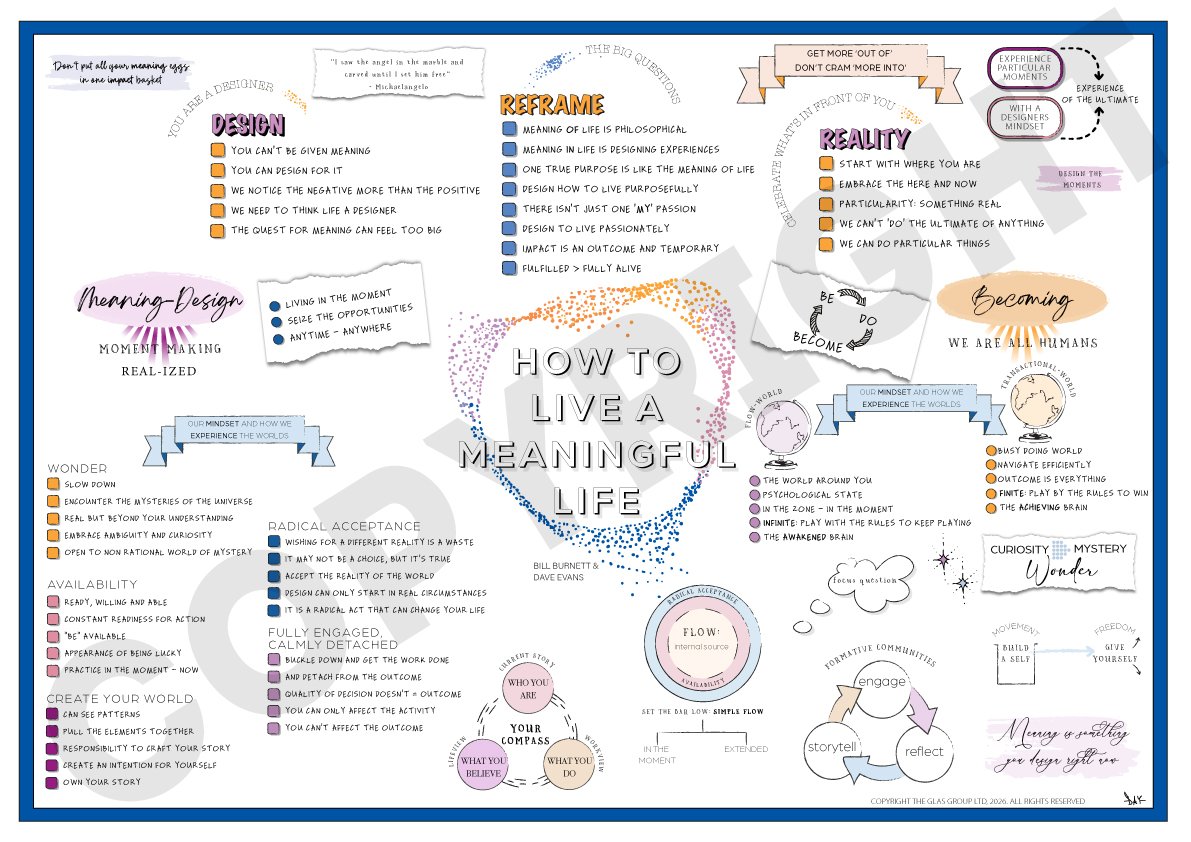 Don't put all your meaning eggs
in one impact basket
"I saw the angel in the marble and
carved until I set him free"
- Michaelangelo
YOU ARE A DESIGNER
DESIGN
YOU CAN'T BE GIVEN MEANING
YOU CAN DESIGN FOR IT
WE NOTICE THE NEGATIVE MORE THAN THE POSITIVE
WE NEED TO THINK LIFE A DESIGNER
THE QUEST FOR MEANING CAN FEEL TOO BIG
THE BIG QUESTIONS
REFRAME
MEANING OF LIFE IS PHILOSOPHICAL
MEANING IN LIFE IS DESIGNING EXPERIENCES
ONE TRUE PURPOSE IS LIKE THE MEANING OF LIFE
DESIGN HOW TO LIVE PURPOSEFULLY
THERE ISN'T JUST ONE 'MY' PASSION
DESIGN TO LIVE PASSIONATELY
IMPACT IS AN OUTCOME AND TEMPORARY
FULFILLED > FULLY ALIVE
GET MORE 'OUT OF'
DON'T CRAM 'MORE INTO'
CELEBRATE WHAT'S IN FRONT OF YOU
REALITY
START WITH WHERE YOU ARE
EMBRACE THE HERE AND NOW
PARTICULARITY: SOMETHING REAL
WE CAN'T 'DO' THE ULTIMATE OF ANYTHING
WE CAN DO PARTICULAR THINGS
EXPERIENCE
PARTICULAR
MOMENTS
WITH A
DESIGNERS
MINDSET
EXPERIENCE
OF THE ULTIMATE
DESIGN THE
MOMENTS
Meaning-Design
MOMENT MAKING
REAL-IZED
LIVING IN THE MOMENT
SEIZE THE OPPORTUNITIES
ANYTIME - ANYWHERE
BE
DO
BECOME
Becoming
WE ARE ALL HUMANS
HOW TO
LIVE A
MEANINGFUL
LIFE
BILL BURNETT &
DAVE EVANS
OUR MINDSET AND HOW WE
EXPERIENCE THE WORLDS
WONDER
SLOW DOWN
ENCOUNTER THE MYSTERIES OF THE UNIVERSE
REAL BUT BEYOND YOUR UNDERSTANDING
EMBRACE AMBIGUITY AND CURIOSITY
OPEN TO NON RATIONAL WORLD OF MYSTERY
AVAILABILITY
READY, WILLING AND ABLE
CONSTANT READINESS FOR ACTION
"BE" AVAILABLE
APPEARANCE OF BEING LUCKY
PRACTICE IN THE MOMENT - NOW
CREATE YOUR WORLD
CAN SEE PATTERNS
PULL THE ELEMENTS TOGETHER
RESPONSIBILITY TO CRAFT YOUR STORY
CREATE AN INTENTION FOR YOURSELF
OWN YOUR STORY
RADICAL ACCEPTANCE
WISHING FOR A DIFFERENT REALITY IS A WASTE
IT MAY NOT BE A CHOICE, BUT IT'S TRUE
ACCEPT THE REALITY OF THE WORLD
DESIGN CAN ONLY START IN REAL CIRCUMSTANCES
IT IS A RADICAL ACT THAT CAN CHANGE YOUR LIFE
FULLY ENGAGED,
CALMLY DETACHED
BUCKLE DOWN AND GET THE WORK DONE
AND DETACH FROM THE OUTCOME
QUALITY OF DECISION DOESN'T = OUTCOME
YOU CAN ONLY AFFECT THE ACTIVITY
YOU CAN'T AFFECT THE OUTCOME
CURRENT STORY
WHO YOU
ARE
YOUR
COMPASS
LIFEVIEW
WHAT YOU
BELIEVE
WORKVIEW
WHAT YOU
DO
RADICAL ACCEPTANCE
FLOW:
internal source
AVAILABILITY
SET THE BAR LOW: SIMPLE FLOW
IN THE
MOMENT
EXTENDED
FLOW-WORLD
OUR MINDSET AND HOW WE
EXPERIENCE THE WORLDS
TRANSACTIONAL-WORLD
THE WORLD AROUND YOU
PSYCHOLOGICAL STATE
IN THE ZONE - IN THE MOMENT
INFINITE: PLAY WITH THE RULES TO KEEP PLAYING
THE AWAKENED BRAIN
BUSY DOING WORLD
NAVIGATE EFFICIENTLY
OUTCOME IS EVERYTHING
FINITE: PLAY BY THE RULES TO WIN
THE ACHIEVING BRAIN
focus question
CURIOSITY MYSTERY
Wonder
FORMATIVE COMMUNITIES
engage
storytell
reflect
MOVEMENT
BUILD
A SELF
FREEDOM
GIVE
YOURSELF
Meaning is something
you design right now
COPYRIGHT THE GLAS GROUP LTD, 2026. ALL RIGHTS RESERVED
DAK
COPYRIGHT